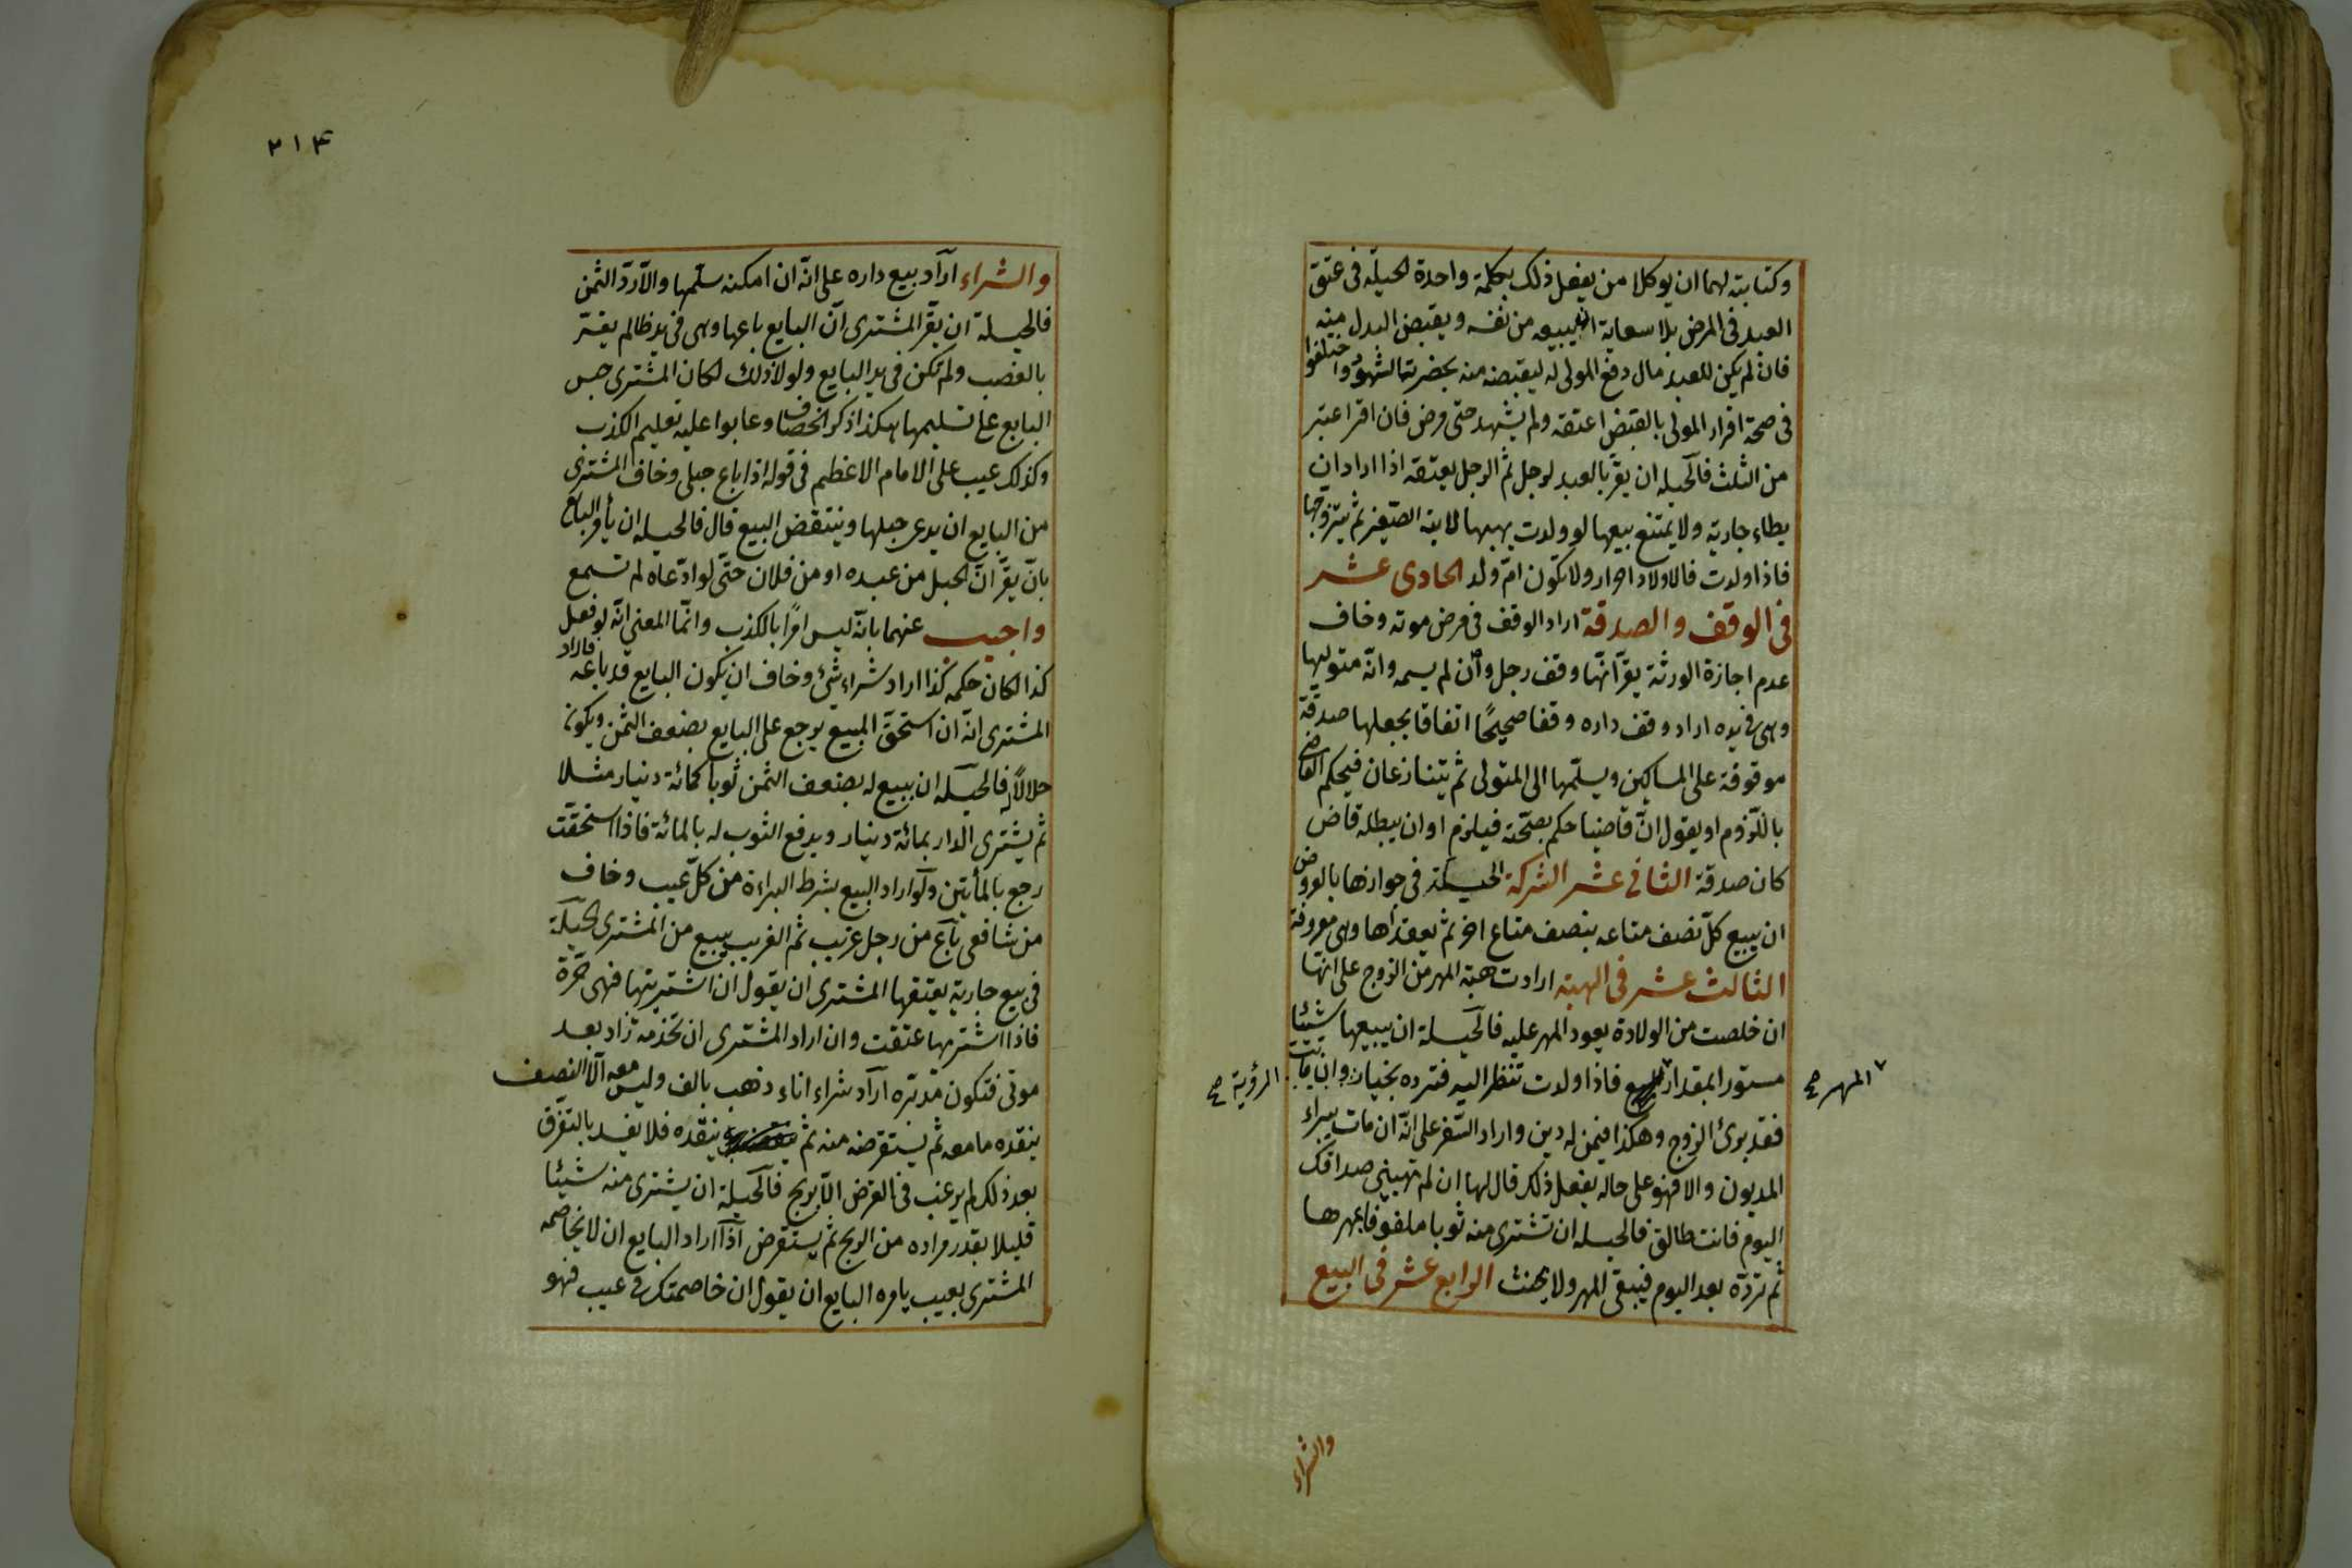 وكتابته لهما ان يوكلا من يفعل ذلك بكلمة واحدة الحيلة فى عتق
العبد فى المرض بلا سعاية ان يبيعه من نفسه ويقبض البدل منه
فان لم يكن للعبد مال دفع المولى له ليقبضه منه بحضرة الشهود واختلفوا
فى صحة اقرار المولى بالقبض اعتقه ولم يشهد حتى مرض فان اقر اعتبر
من الثلث فالحيله ان يقر بالعبد لرجل ثم الرجل يعتقه اذا اراد ان
يطاء جارية ولا يمتنع بيعها لو ولدت يهبها لابنه الصغير ثم يتزوجها
فاذا ولدت فالاولاد احرار ولا تكون ام ولد الحادى عشر
فى الوقف والصدقة اراد الوقف فى مرض موته وخاف
عدم اجازة الورثة يقر انها وقف رجل وان لم يسمه وانه متوليها
وهى فى يده اراد وقف داره وقفا صحيحا اتفاقا يجعلها صدقة
موقوفة على المساكين ويسلمها الى المتولى ثم يتنازعان فيحكم القاضى
باللزوم او يقول ان قاضيا حكم بصحته فيلزم او ان يبطله قاض
كان صدقة الثانى عشر الشركة الحيلة فى جوازها بالعروض
ان يبيع كل نصف متاعه بنصف متاع اخر ثم يعقداها وهى معروفة
الثالث عشر فى الهبة ارادت هبة المهر من الزوج على انها
ان خلصت من الولادة يعود المهر عليه فالحيلة ان يبيعها شيئا
مستورا بمقدار فاذا ولدت تنظر اليه فترده بخيار وان ماتت
المهر صح
الرؤية صح
فقد برئ الزوج وهكذا فيمن له دين واراد السفر على انه ان مات يبراء
المديون والا فهو على حاله يفعل ذلك قال لها ان لم تهبينى صداقك
اليوم فانت طالق فالحيله ان تشترى منه ثوبا ملفوفا بمهرها
ثم ترده بعد اليوم فيبقى المهر ولا يحنث الرابع عشر فى البيع
والشراء
٢١٤
والشراء اراد بيع داره على انه ان امكنه سلمها والا رد الثمن
فالحيلة ان يقر المشترى ان البايع باعها وهى فى يد ظالم يقر
بالغصب ولم تكن فى يد البايع ولولا ذلك لكان المشترى حبس
البايع على تسليمها هكذا ذكر الخصاف وعابوا عليه تعليم الكذب
وكذلك عيب على الامام الاعظم فى قوله اذا باع حبلى وخاف المشترى
من البايع ان يدعى حبلها وينتقض البيع قال فالحيله ان يأمر البايع
بان يقر ان الحبل من عبده او من فلان حتى لو ادعاه لم تسمع
واجيب عنهما بانه ليس امرا بالكذب وانما المعنى انه لو فعل
كذا لكان حكمه كذا اراد شراء شئ وخاف ان يكون البايع قد باعه فاراد
المشترى انه ان استحق المبيع يرجع على البايع بضعف الثمن ويكون
حلالا له فالحيله ان يبيع له بضعف الثمن ثوبا كمائة دينار مثلا
ثم يشترى الدار بمائة دينار ويدفع الثوب له بالمائة فاذا استحقت
رجع بالمأيتين ولو اراد البيع بشرط البراءة من كل عيب وخاف
من شافعى باع من رجل غريب ثم الغريب يبيع من المشترى الحيلة
فى بيع جارية يعتقها المشترى ان يقول ان اشتريتها فهى حرة
فاذا اشترىها عتقت وان اراد المشترى ان تخدمه زاد بعد
موتى فتكون مدبره اراد شراء اناء ذهب بالف وليس معه الا النصف
ينقده ما معه ثم يستقرضه منه ثم ينقده فلا يفسد بالتفرق
بعد ذلك لم يرغب فى القرض الا بربح فالحيلة ان يشترى منه شيئا
قليلا بقدر مراده من الربح ثم يستقرض اذا اراد البايع ان لا يخاصمه
المشترى بعيب يامره البايع ان يقول ان خاصمتك فى عيب فهو